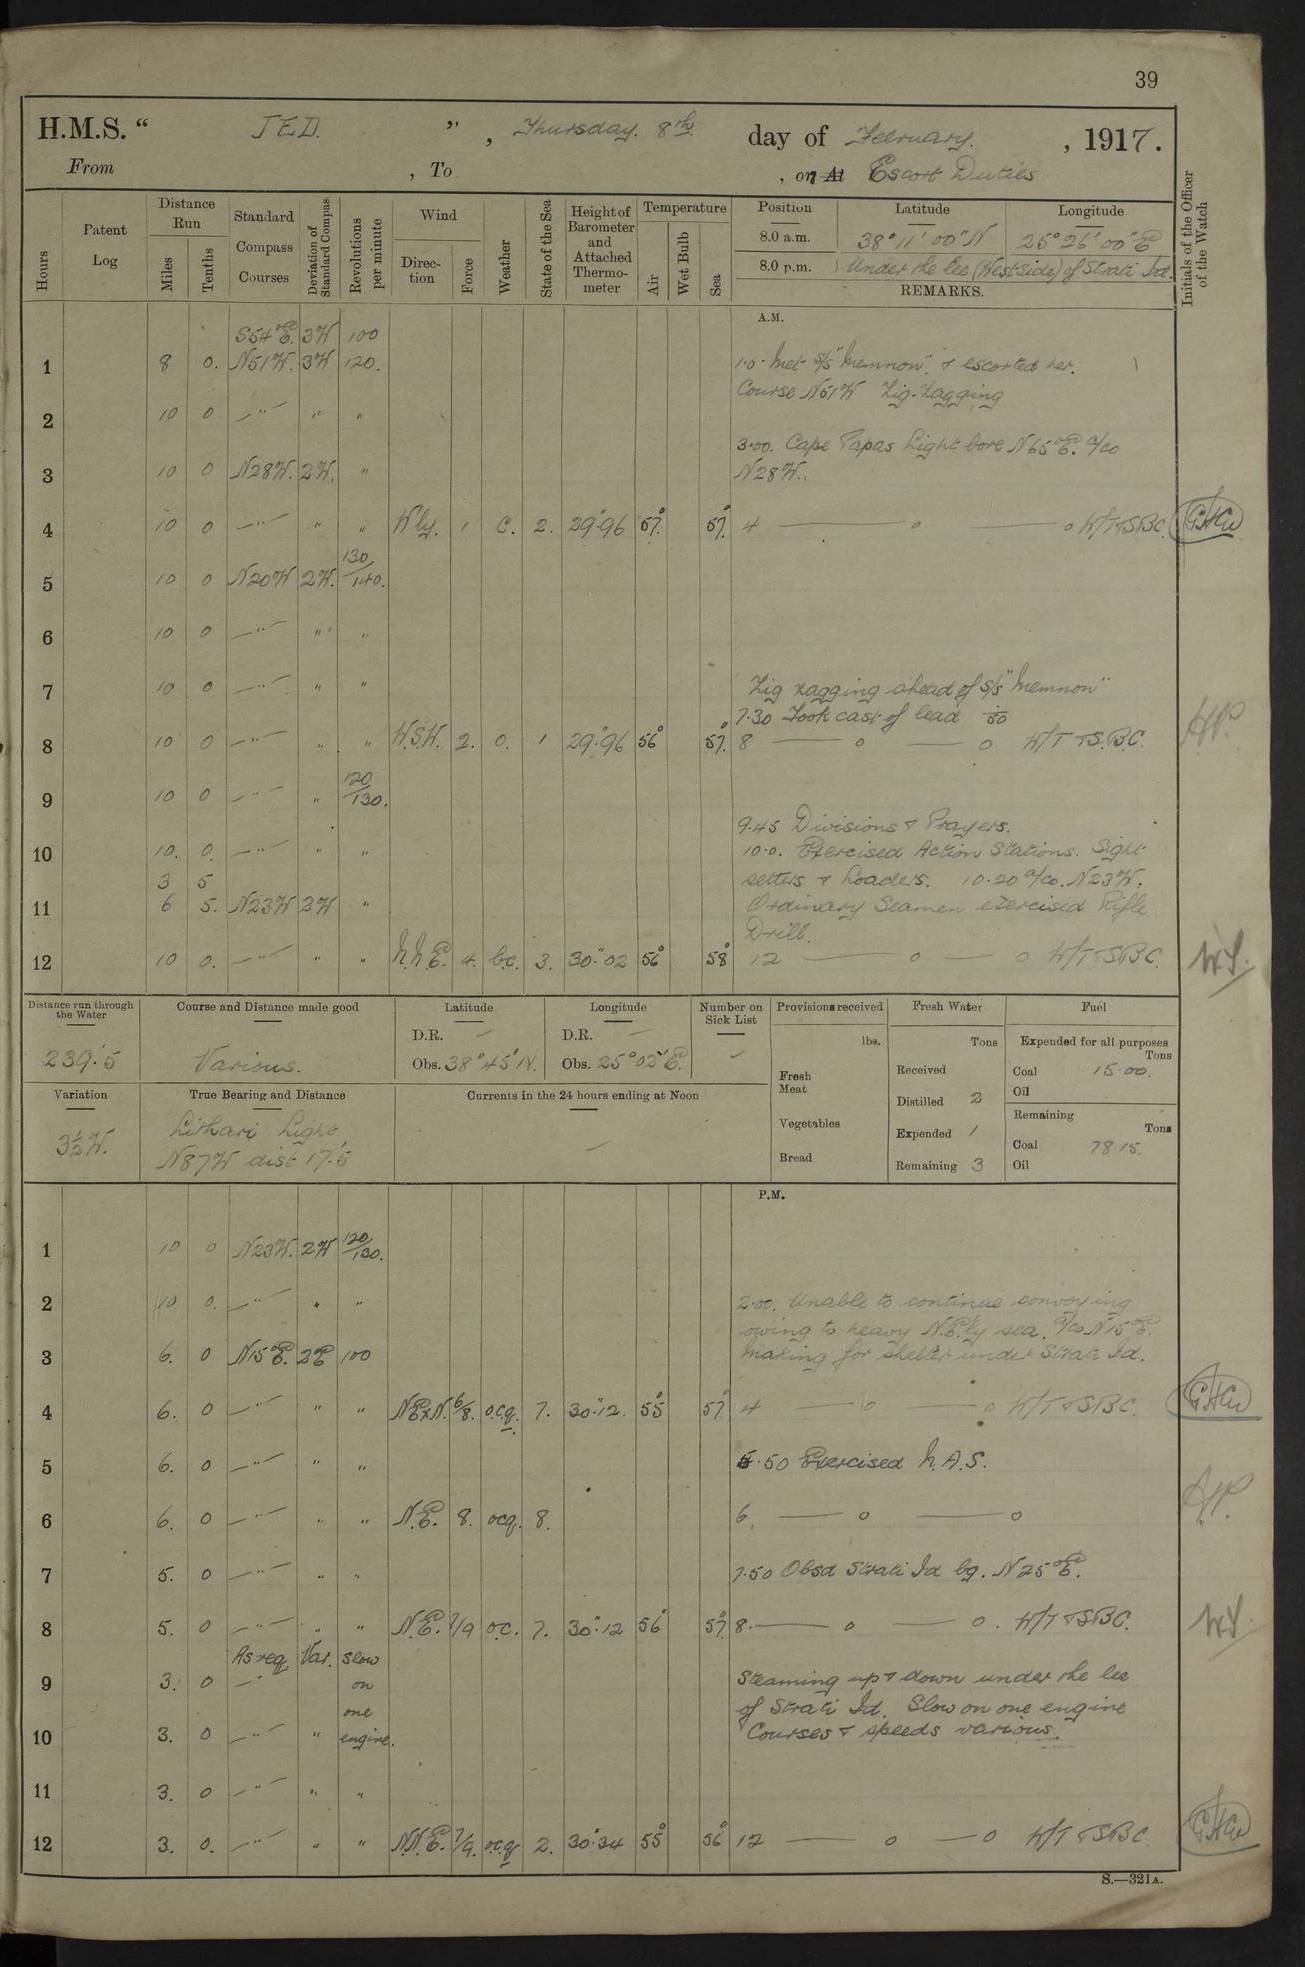 39
H.M.S. " JED. ", Thursday. 8th day of February. , 1917.
From , To , or At Escort Duties
Hours
Patent Log
Distance Run
Miles
Tenths
Standard Compass Courses
Deviation of Standard Compass
Revolutions per minute
Wind
Direction
Force
Weather
State of the Sea
Height of Barometer and Attached Thermometer
Temperature
Air
Wet Bulb
Sea
Position Latitude Longitude
8.0 a.m. 38° 11' 00" N 25° 26' 00" E
8.0 p.m. Under the lee (West side) of Strati Id.
REMARKS.
Initials of the Officer of the Watch
A.M.
S54°E. 3W 100
1 8 0. N51W. 3W 120. 1.0 - Met S/S "Memnon" & escorted her.
Course N51W Zig-Zagging
2 10 0 —"— " "
3.00. Cape Papas Light bore N65°E. a/co
3 10 0 N28W. 2W. " N28W.
4 10 0 —"— " " W'ly. 1 C. 2. 29.96 57° 57° 4 — o — o W/T TSBC. GHW
130
5 10 0 N20W 2W. /140.
6 10 0 —"— " "
7 10 0 —"— " " Zig zagging ahead of S/S "Memnon"
7.30 Took cast of lead 50
8 10 0 —"— " " W.S.W. 2. O. 1 29.96 56° 57° 8 — o — o W/T TS.B.C.
120
9 10 0 —"— " /130.
9.45 Divisions & Prayers.
10 10. 0. —"— " " 10.0. Exercised Action Stations. Sight
3 5 setters & Loaders. 10.20 a/co. N23W.
11 6 5. N23W 2W " Ordinary Seamen exercised Rifle
Drill.
12 10 0. —"— " " N.N.E. 4. b.c. 3. 30.02 56° 58° 12 — o — o W/T TSBC. W.S.
Distance run through the Water
239.5
Course and Distance made good
Various.
Latitude
D.R. —
Obs. 38° 45' N.
Longitude
D.R. —
Obs. 25° 02' E.
Number on Sick List
—
Provisions received
lbs.
Fresh Meat
Vegetables
Bread
Fresh Water
Tons
Received
Distilled 2
Expended 1
Remaining 3
Fuel
Expended for all purposes
Tons
Coal 15.00.
Oil
Remaining
Tons
Coal 78.15.
Oil
Variation
3½W.
True Bearing and Distance
Lithari Light
N87W dist 17.5
Currents in the 24 hours ending at Noon
—
P.M.
120
1 10 0 N23W. 2W /130.
2 10 0. —"— " " 2.00. Unable to continue convoying
owing to heavy N.E.'ly sea. a/co N15°E.
3 6. 0 N15°E. 2E 100 Making for shelter under Strati Id.
4 6. 0 —"— " " NExN. 6/8. o.c.q. 7. 30.12. 55° 57° 4 — o — o W/T TSBC. GHW
5 6. 0 —"— " " 5.50 Exercised N.A.S.
6 6. 0 —"— " " N.E. 8. ocq. 8. 6. — o — o
7 5. 0 —"— " " 7.50 Obsd Strati Id bg. N25°E.
8 5. 0 —"— " " N.E. 7/9 o.c. 7. 30.12 56 57° 8. — o — o. W/T TSBC. W.S.
As req Var. Slow
9 3. 0 —"— on Steaming up & down under the lee
one of Strati Id. Slow on one engine
10 3. 0 —"— " engine. Courses & speeds various.
11 3. 0 —"— " "
12 3. 0. —"— " " N.N.E. 7/9. o.c.q 2. 30.34 55° 56° 12 — o — o W/T TSBC. GHW
S.—321A.